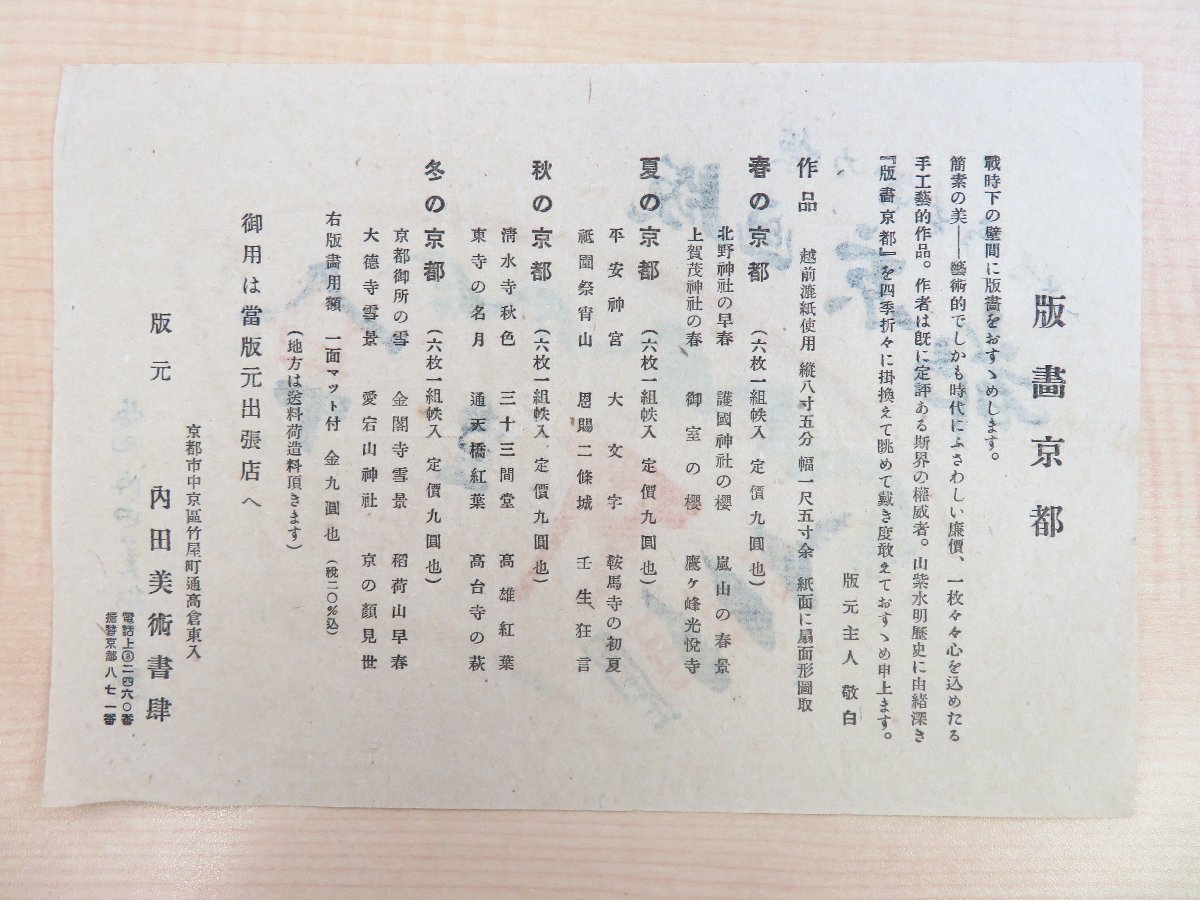 版畫京都
戰時下の壁間に版畫をおすゝめします。
簡素の美――藝術的でしかも時代にふさわしい廉價、一枚々々心を込めたる
手工藝的作品。作者は既に定評ある斯界の權威者。山紫水明歷史に由緒深き
『版畫京都』を四季折々に掛換えて眺めて戴き度敢えておすゝめ申上ます。
版元主人 敬白
作品 越前漉紙使用 縱八寸五分 幅一尺五寸余 紙面に扇面形圖取
春の京都 (六枚一組帙入 定價九圓也)
北野神社の早春 護國神社の櫻 嵐山の春景
上賀茂神社の春 御室の櫻 鷹ヶ峰光悅寺
夏の京都 (六枚一組帙入 定價九圓也)
平安神宮 大文字 鞍馬寺の初夏
祇園祭宵山 恩賜二條城 壬生狂言
秋の京都 (六枚一組帙入 定價九圓也)
淸水寺秋色 三十三間堂 高雄紅葉
東寺の名月 通天橋紅葉 高台寺の萩
冬の京都 (六枚一組帙入 定價九圓也)
京都御所の雪 金閣寺雪景 稻荷山早春
大德寺雪景 愛宕山神社 京の顏見世
右版畫用額 一面マット付 金九圓也 (稅二〇%込)
(地方は送料荷造料頂きます)
御用は當版元出張店へ
京都市中京區竹屋町通高倉東入
版元 內田美術書肆
電話上③二四六〇番
振替京都八七一番